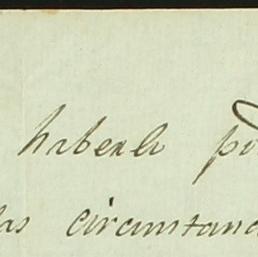 haberle po
las circunstanc